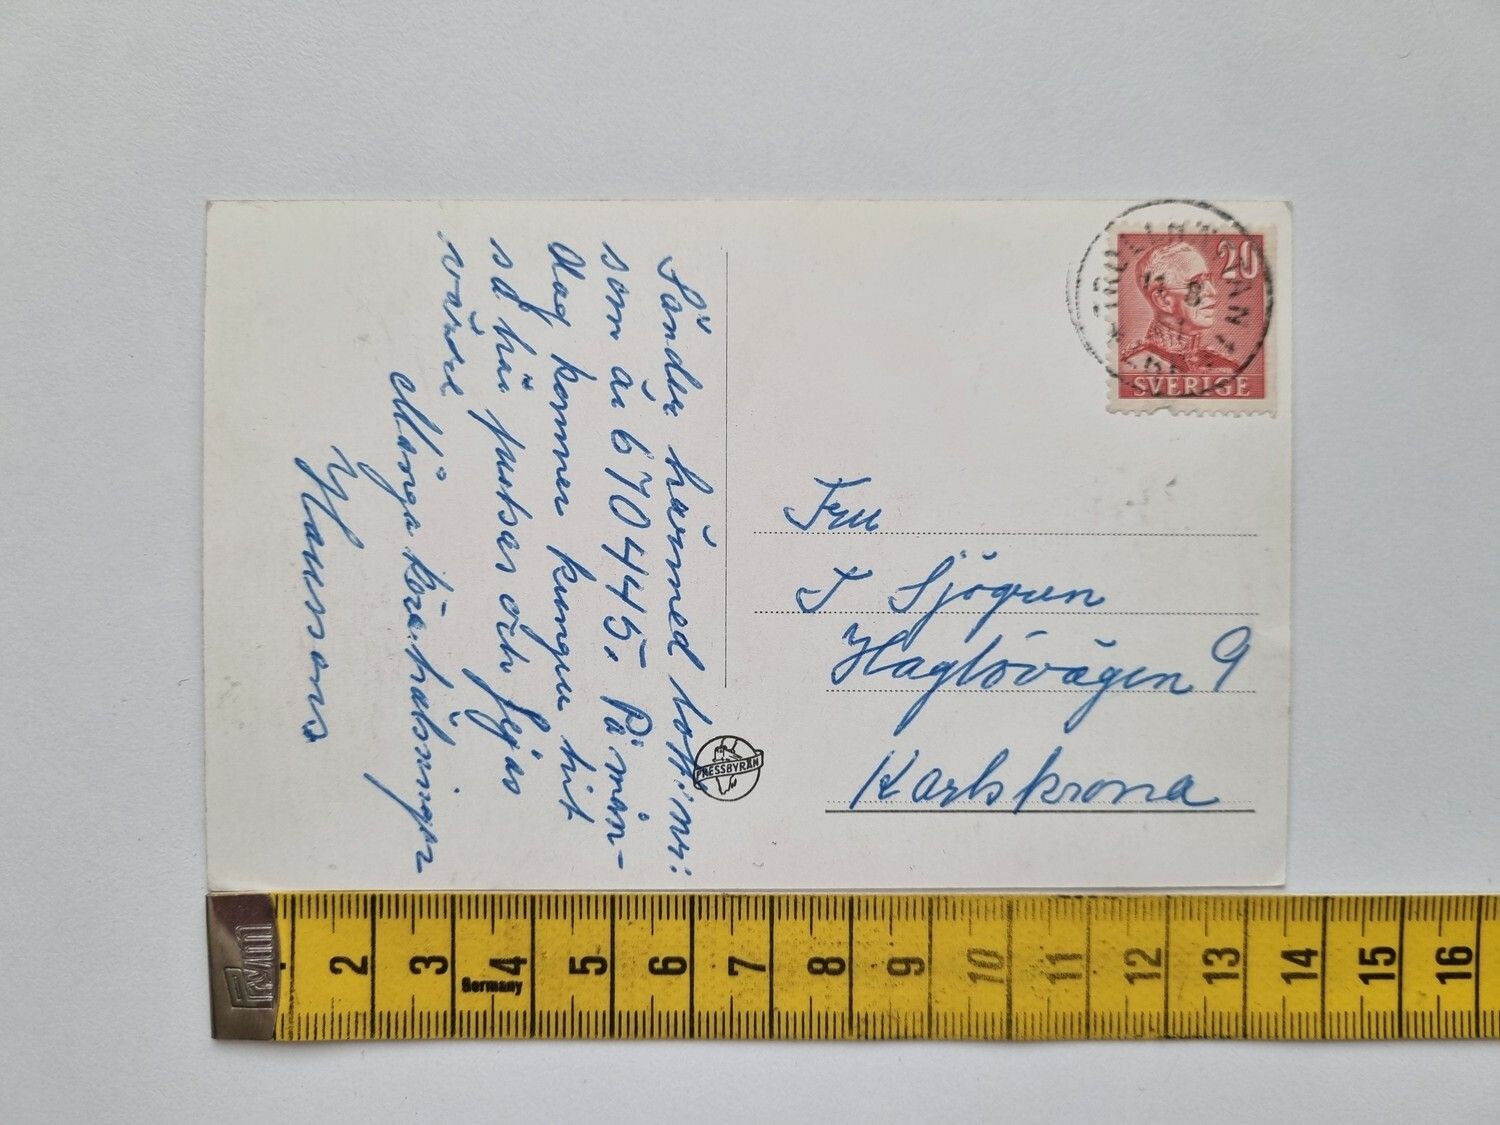 Sänder härmed lottnr:
som är 670445. På mån-
dag kommer kungen hit
så här putsas och fejas
värre
Många kära hälsningar
Hanssons
PRESSBYRÅN
20
SVERIGE
TROLLHÄTTAN 1
Fru
I Sjögren
Haglövägen 9
Karlskrona
PRYM
2 3 4 5 6 7 8 9 10 11 12 13 14 15 16
Germany